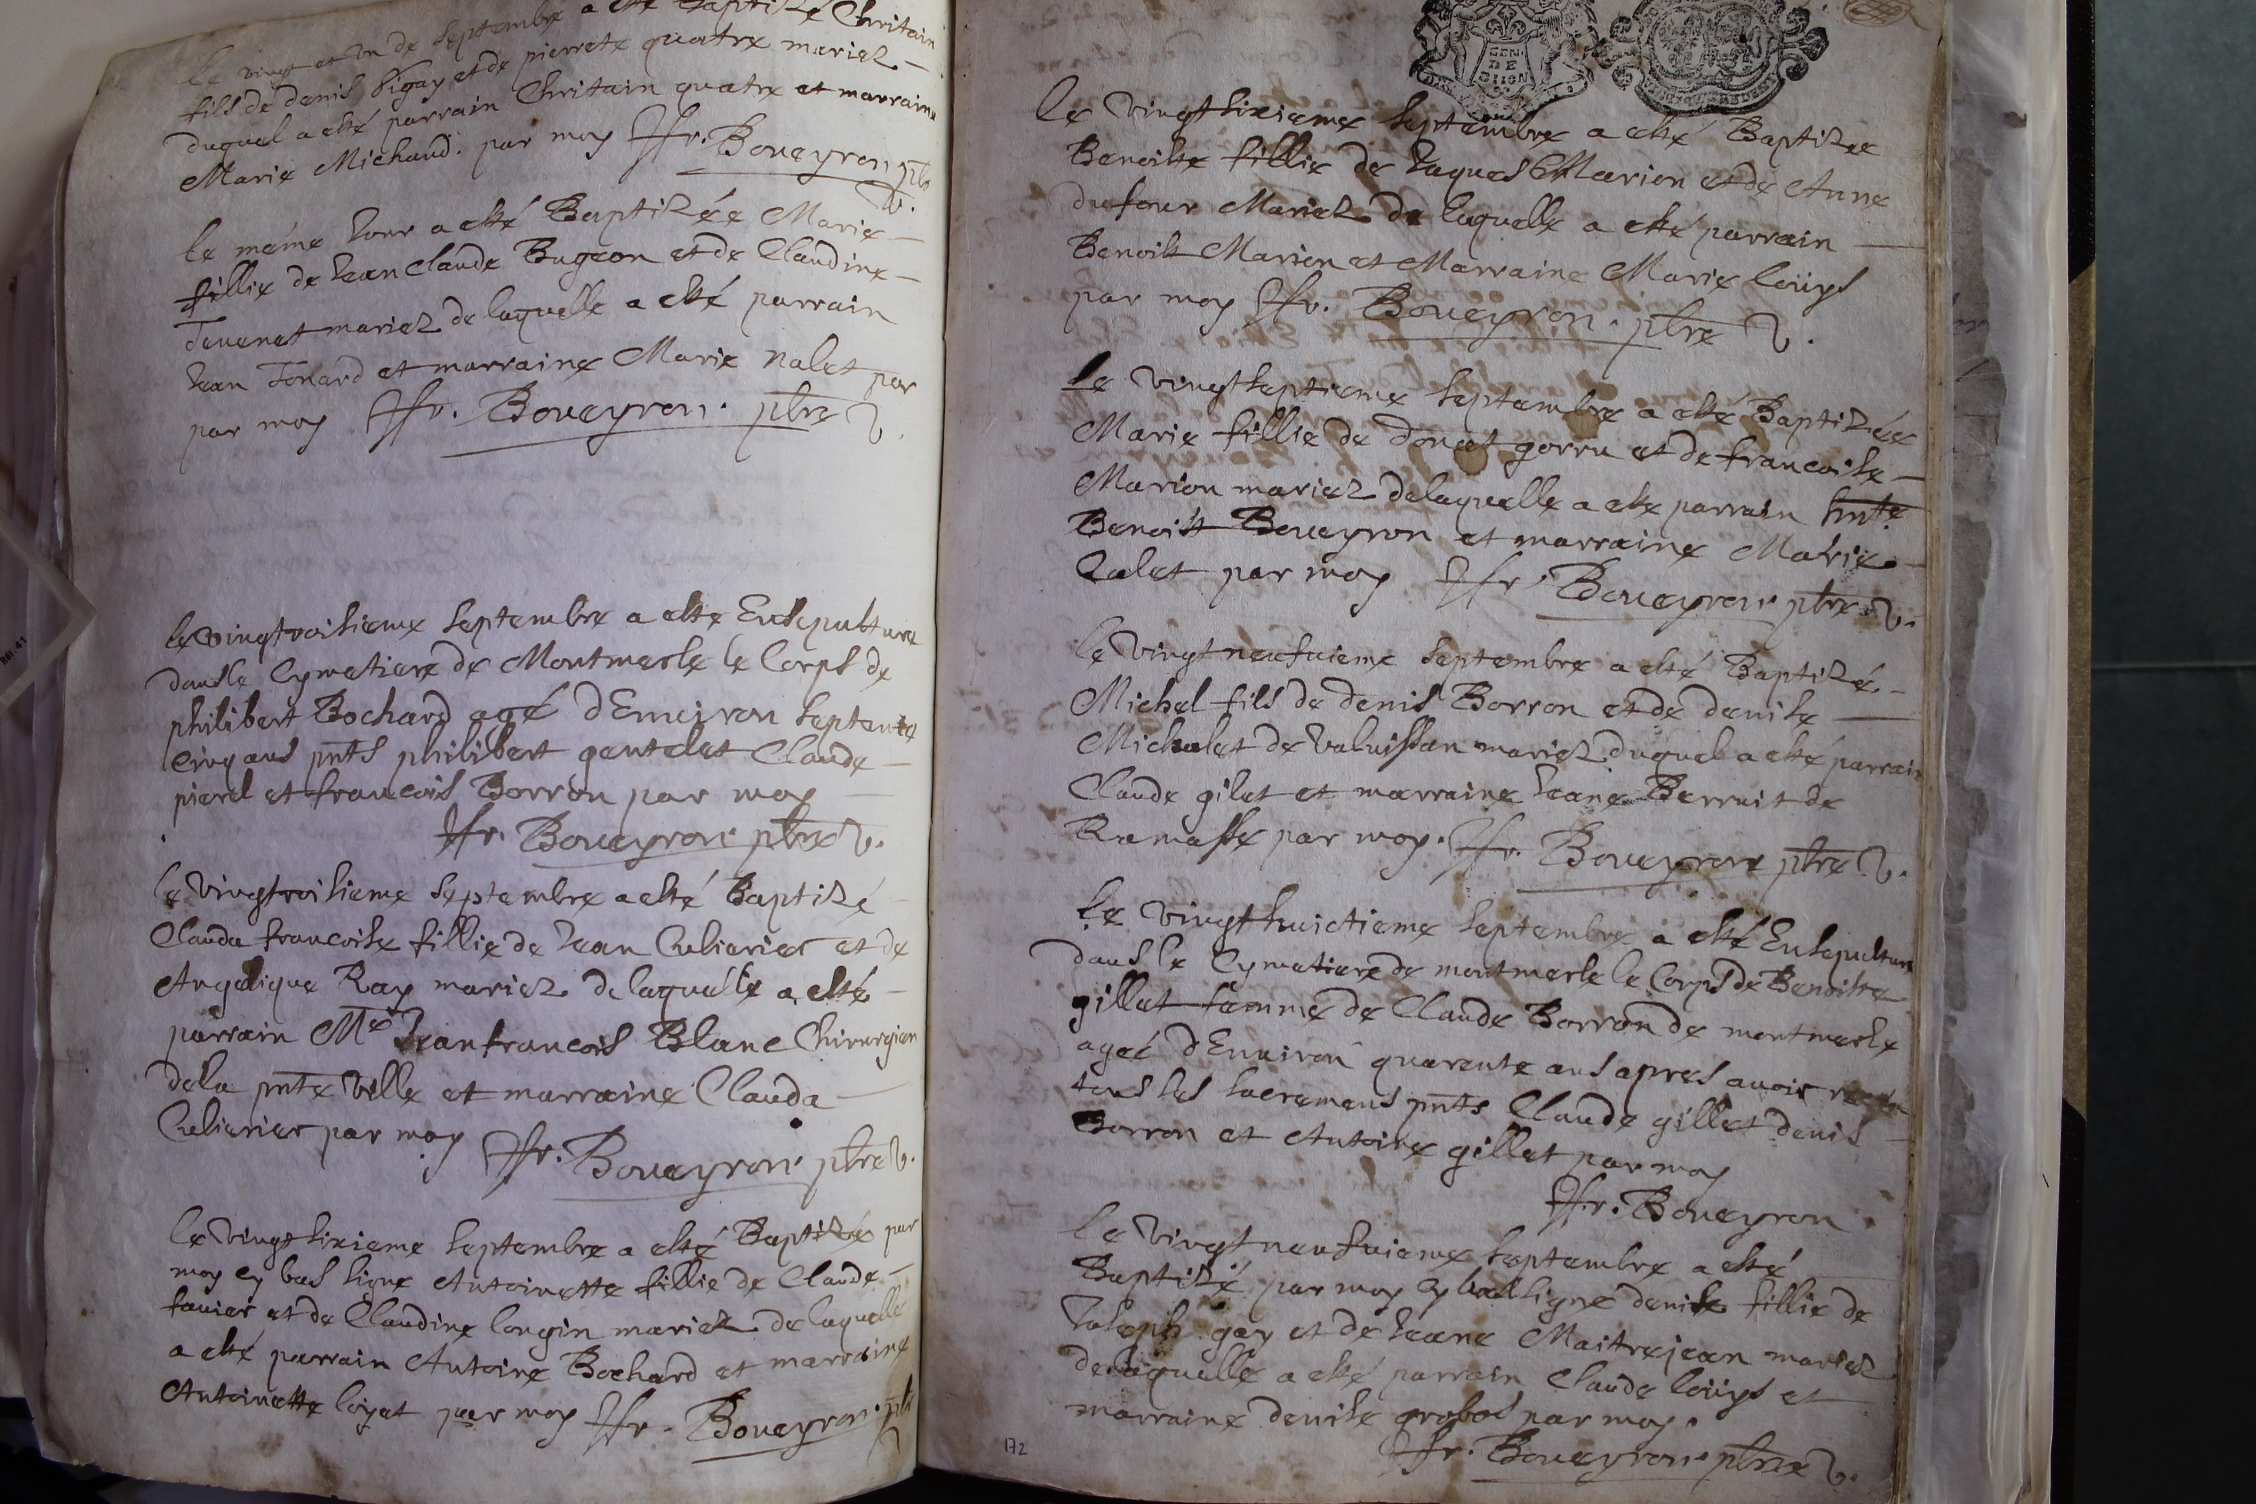 le vingt et un de septembre a esté baptizé Christain
fils de denis Pigay et de pierrete quatre mariez
duquel a esté parrain Christain quatre et marraine
Marie Michaud. par moy ffr. Boueyron ptre
le méme Jour a esté Baptizée Marie
fillie de Jean Claude Bugeon et de Claudine
Teuenet mariez de laquelle a esté parrain
Jean Tonard et marraine Marie nalet par
par moy ffr. Boueyron. ptre
le vingtroisieme septembre a esté Ensepulturé
dans le Cymetiere de Montmerle le Corps de
philibert Bochard agé d'Enuiron septente
cinq ans pnts philibert gentelet Claude
pierel et francois Borron par moy
ffr. Boueyron ptre
le vingtroisieme septembre a esté Baptizé
Clauda francoise fillie de Jean Cuherier et de
Angelique Ray mariez de laquelle a esté
parrain Me Jean francois Blanc Chirurgien
de la pnte ville et marraine Clauda
Cuherier par moy ffr. Boueyron ptre
le vingt sixieme septembre a esté Baptizé par
moy cy bas signé Antoinette fillie de Claude
fauier et de Claudine longin mariez de laquelle
a esté parrain Antoine Bochard et marraine
Antoinette loyet par moy ffr. Boueyron. ptre
GEN.
DE
DIION
le vingt sixieme septembre a esté Baptizée
Benoiste fillie de Jaques Marion et de Anne
dufour Mariez de laquelle a esté parrain
Benoist Marion et Marraine Marie loüys
par moy ffr. Boueyron. ptre
le vingt septieme septembre a esté Baptizée
Marie fillie de donat gorru et de francoise
Marion mariez delaquelle a esté parrain
Benoist Boueyron et marraine Marie
Calet par moy ffr. Boueyron. ptre
le vingt neufuieme septembre a esté Baptizé
Michel fils de denis Borron et de denise
Michelet de Valuissan mariez duquel a esté parrain
Claude gilet et marraine Jeane Berruit de
Ramasse par moy. ffr. Boueyron ptre
le vingt huictieme septembre a esté Ensepulturé
dans le Cymetiere de montmerle le Corps de Benoiste
gillet femme de Claude Borron de montmerle
ageé d'Enuiron quarente ans apres auoir receu
tous les sacremens pnts Claude gillet denis
Borron et Antoine gillet par moy
ffr. Boueyron
le vingt neufuieme septembre a esté
Baptizé par moy cy bas signé denise fillie de
Joseph gay et de Jeane Maitrejean mariez
de laquelle a esté parrain Claude loüys et
marraine denise grobos par moy.
ffr. Boueyron. ptre
172